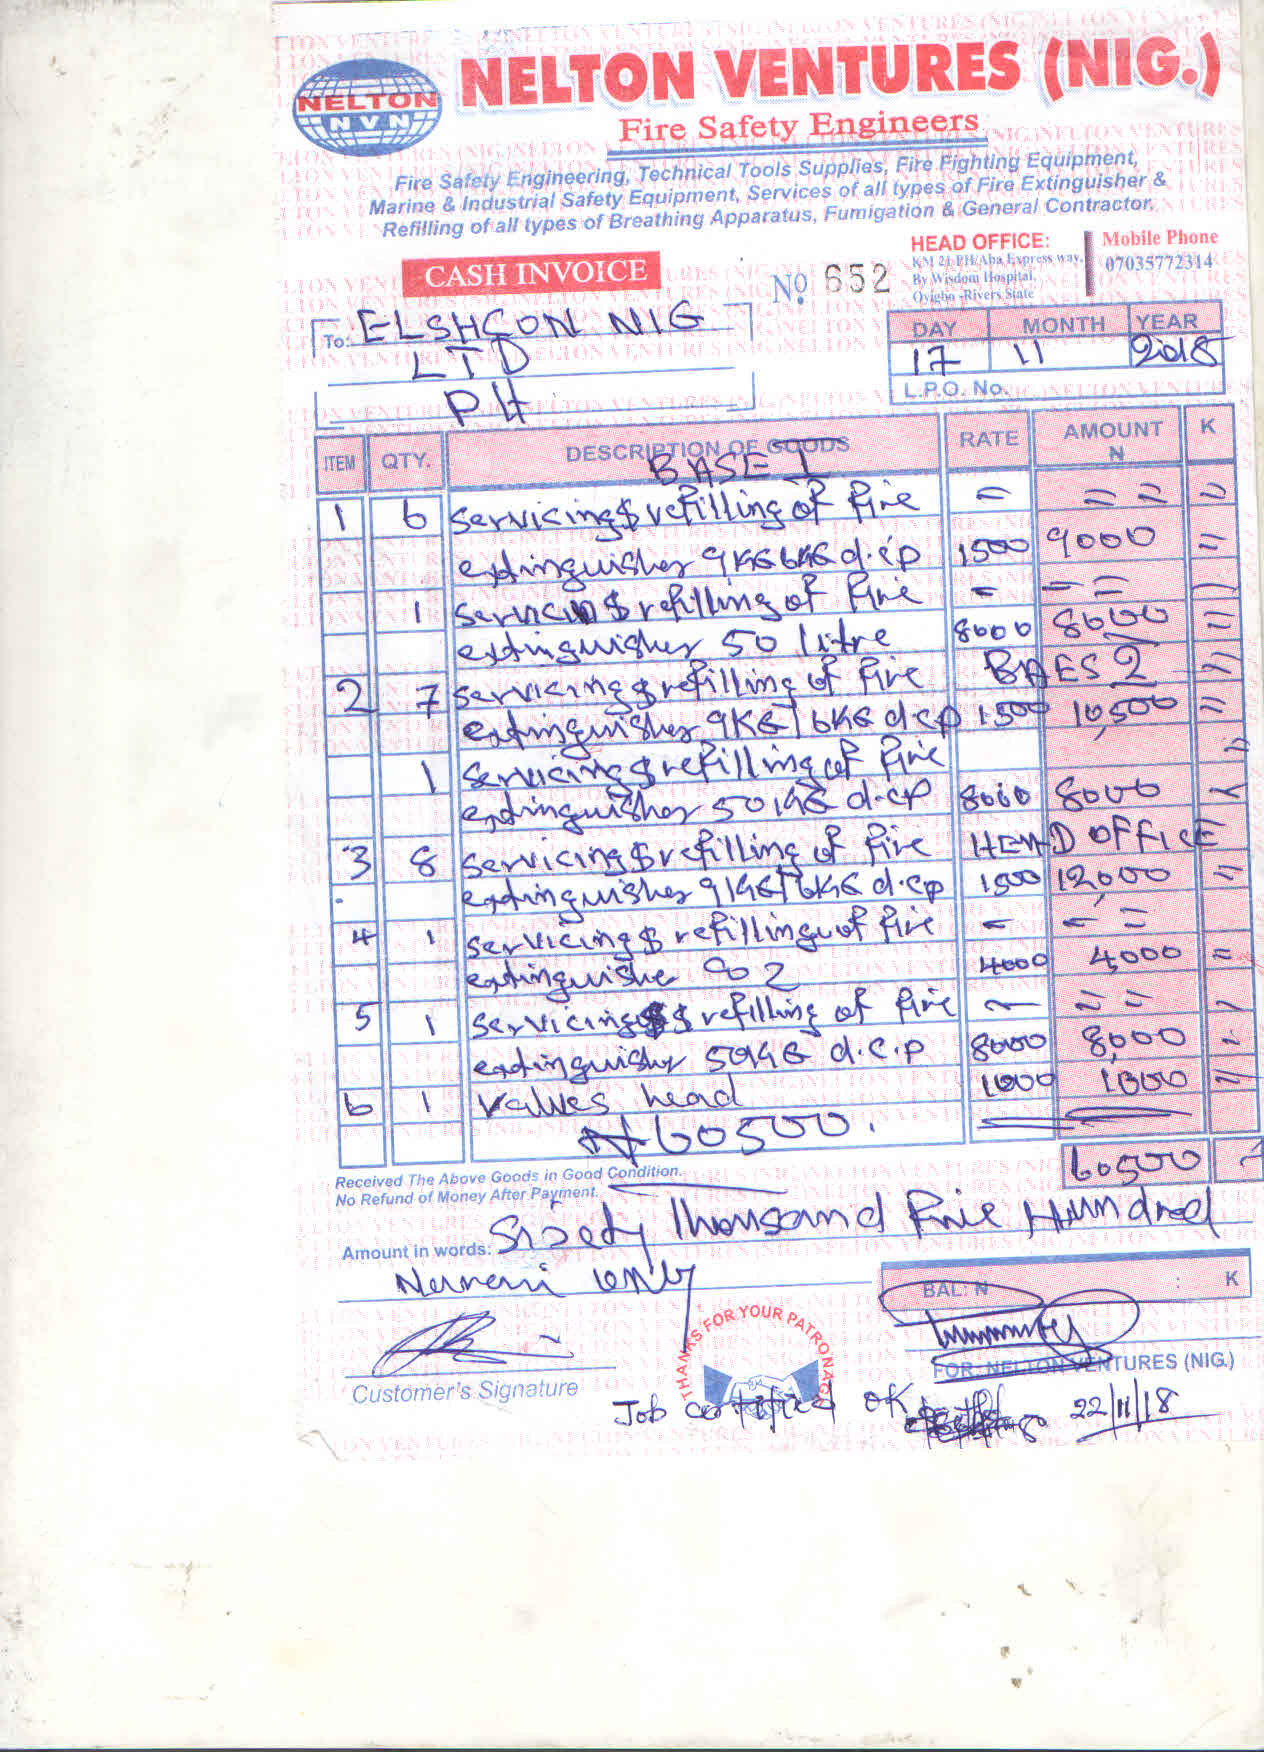 NELTON VENTURES (NIG.)
NELTON
NVN
Fire Safety Engineers
Fire Safety Engineering, Technical Tools Supplies, Fire Fighting Equipment,
Marine & Industrial Safety Equipment, Services of all types of Fire Extinguisher &
Refilling of all types of Breathing Apparatus, Fumigation & General Contractor.
CASH INVOICE
No. 652
HEAD OFFICE:
KM 21 PH/Aba Express way,
By Wisdom Hospital,
Oyigbo -Rivers State
Mobile Phone
07035772314
To: ELSHCON NIG
LTD
PH
DAY MONTH YEAR
17 11 2018
L.P.O. No.
ITEM QTY. DESCRIPTION OF GOODS RATE AMOUNT K
N
BASE I
1 6 servicing $ refilling of fire = = = =
extinguisher 9KG 6KG d.cp 1500 9000 =
1 servicing $ refilling of fire - - =
extinguisher 50 litre 8000 8000 =
2 7 servicing $ refilling of fire BAES 2
extinguisher 9KG/6KG d.cp 1500 10,500 =
1 servicing $ refilling of fire =
extinguisher 50KG d.cp 8000 8000
3 8 servicing $ refilling of fire HEAD OFFICE
extinguisher 9KG/6KG d.cp 1500 12,000 =
4 1 servicing $ refilling of fire - - =
extinguishe CO2 4000 4,000 =
5 1 servicing $ refilling of fire - = =
extinguisher 50KG d.c.p 8000 8,000 =
6 1 Values head 1000 1000 =
₦60500.
60500 =
Received The Above Goods in Good Condition.
No Refund of Money After Payment.
Amount in words: Sixty Thousand Five Hundred
Nareni only
BAL: N : K
THANKS FOR YOUR PATRONAGE
Customer's Signature
FOR: NELTON VENTURES (NIG.)
Job certified OK 22/11/18